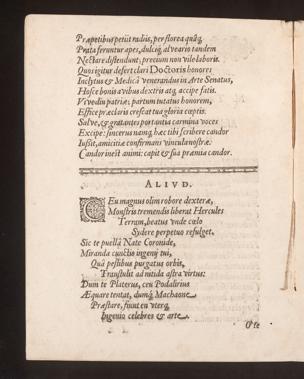 Præpetibus petiit radiis, per florea quæq́;
Prata feruntur apes, dulciq́; alveario tandem
Nectare distendunt: precium non vile laboris.
Quo igitur defert clari Doctoris honore:
Inclytus & Medicâ venerandus in Arte Senatus,
Hosce bonis avibus dextris atq; accipe fatis.
Vive diu patriæ; partum tutatus honorem,
Effice præclaris crescat tua gloria cœptis.
Salve, & gratantes portantia carmina voces
Excipe: sincerus namq; hæc tibi scribere candor
Iussit, amicitiæ confirmans vincula nostræ:
Candor inest animi: capit & sua præmia candor.
ALIVD.
CEu magnus olim robore dexteræ,
Monstris tremendis liberat Hercules
Terram, beatus unde cœlo
Sydere perpetuo refulget.
Sic te puellâ Nate Coronide,
Miranda cunctis ingenij tui,
Quâ pestibus purgatus orbis,
Transtulit ad nitida astra virtus:
Dum te Platerus, ceu Podalirius
Æquare tentat, dumq́; Machaone
Præstare, fiunt en uterq;
Ingenio celebres & arte.
O te